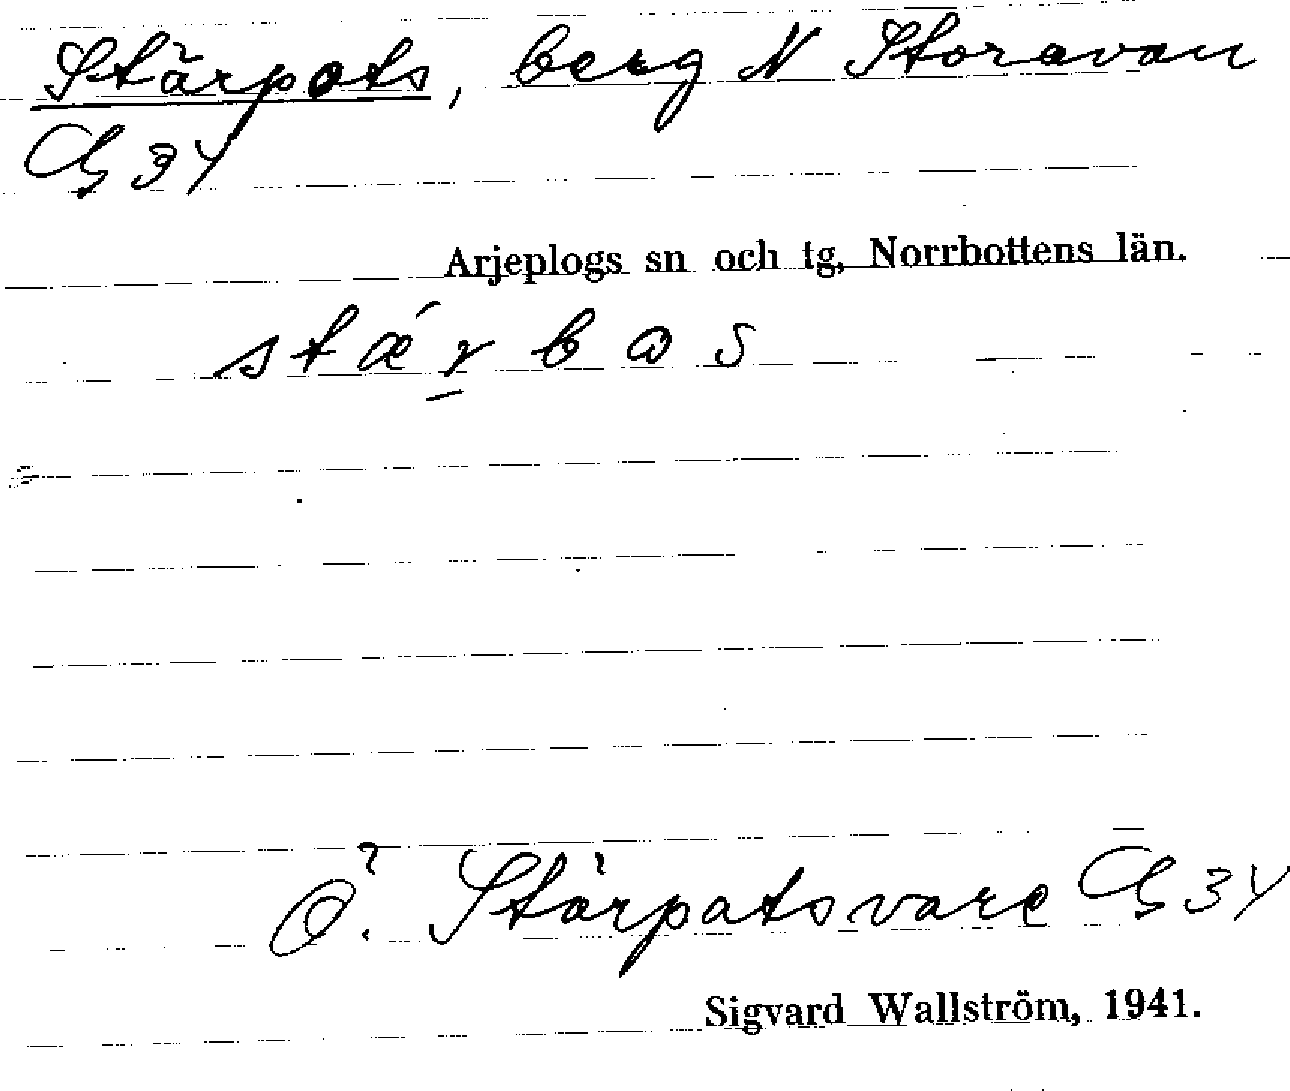 Stärpats, berg N Storavan
G 34
Arjeplogs sn och tg, Norrbottens län.
stǽrbas
Ö. Stärpatsvare G 34
Sigvard Wallström, 1941.